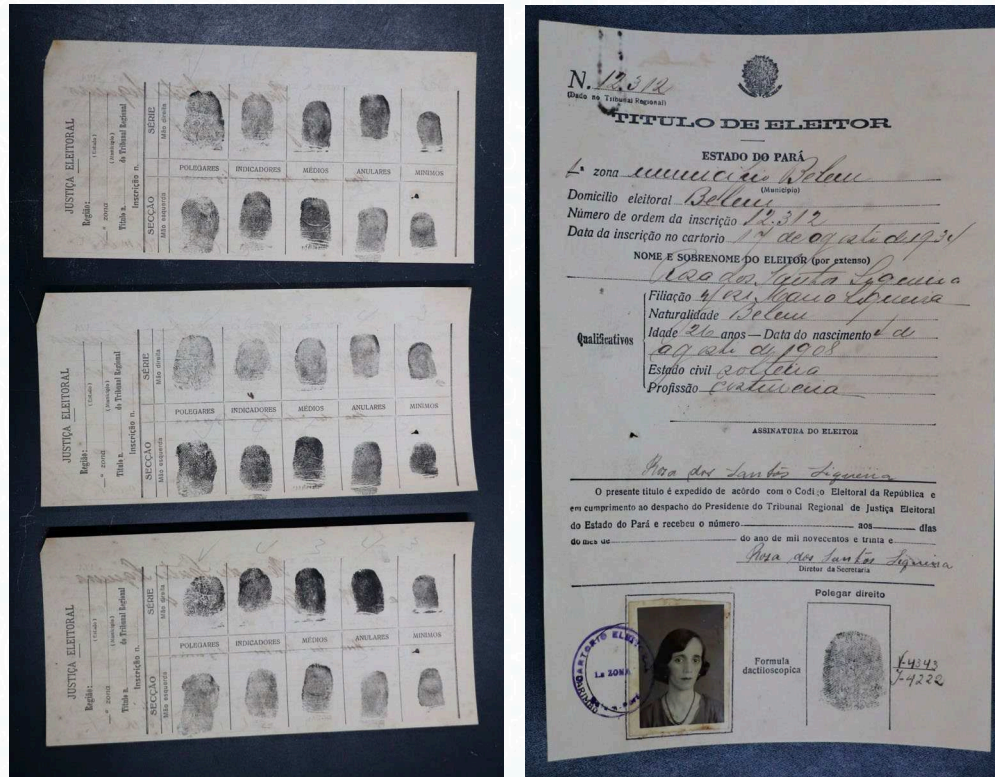 JUSTIÇA ELEITORAL
Região:
(Estado)
___ª zona
(Município)
Título n.
do Tribunal Regional
Inscrição n.
SECÇÃO
SÉRIE
Mão esquerda
Mão direita
POLEGARES
INDICADORES
MÉDIOS
ANULARES
MINIMOS
JUSTIÇA ELEITORAL
Região:
(Estado)
___ª zona
(Município)
Título n.
do Tribunal Regional
Inscrição n.
SECÇÃO
SÉRIE
Mão esquerda
Mão direita
POLEGARES
INDICADORES
MÉDIOS
ANULARES
MINIMOS
JUSTIÇA ELEITORAL
Região:
(Estado)
___ª zona
(Município)
Título n.
do Tribunal Regional
Inscrição n.
SECÇÃO
SÉRIE
Mão esquerda
Mão direita
POLEGARES
INDICADORES
MÉDIOS
ANULARES
MINIMOS
N. 12.312
(Dado no Tribunal Regional)
TITULO DE ELEITOR
ESTADO DO PARÁ
1ª zona município Belem
(Município)
Domicilio eleitoral Belem
Número de ordem da inscrição 12.312
Data da inscrição no cartorio 17 de agosto de 1934
NOME E SOBRENOME DO ELEITOR (por extenso)
Rosa dos Santos Siqueira
Qualificativos
Filiação Maria Siqueira
Naturalidade Belem
Idade 26 anos — Data do nascimento de
agosto de 1908
Estado civil solteira
Profissão costureira
ASSINATURA DO ELEITOR
Rosa dos Santos Siqueira
O presente titulo é expedido de acôrdo com o Codigo Eleitoral da República e
em cumprimento ao despacho do Presidente do Tribunal Regional de Justiça Eleitoral
do Estado do Pará e recebeu o número___ aos___ dias
do mes de___ do ano de mil novecentos e trinta e___
Rosa dos Santos Siqueira
Diretor da Secretaria
Polegar direito
CARTORIO ELEITORAL
1.a ZONA
Formula
dactiloscopica
V-4343
V-4222